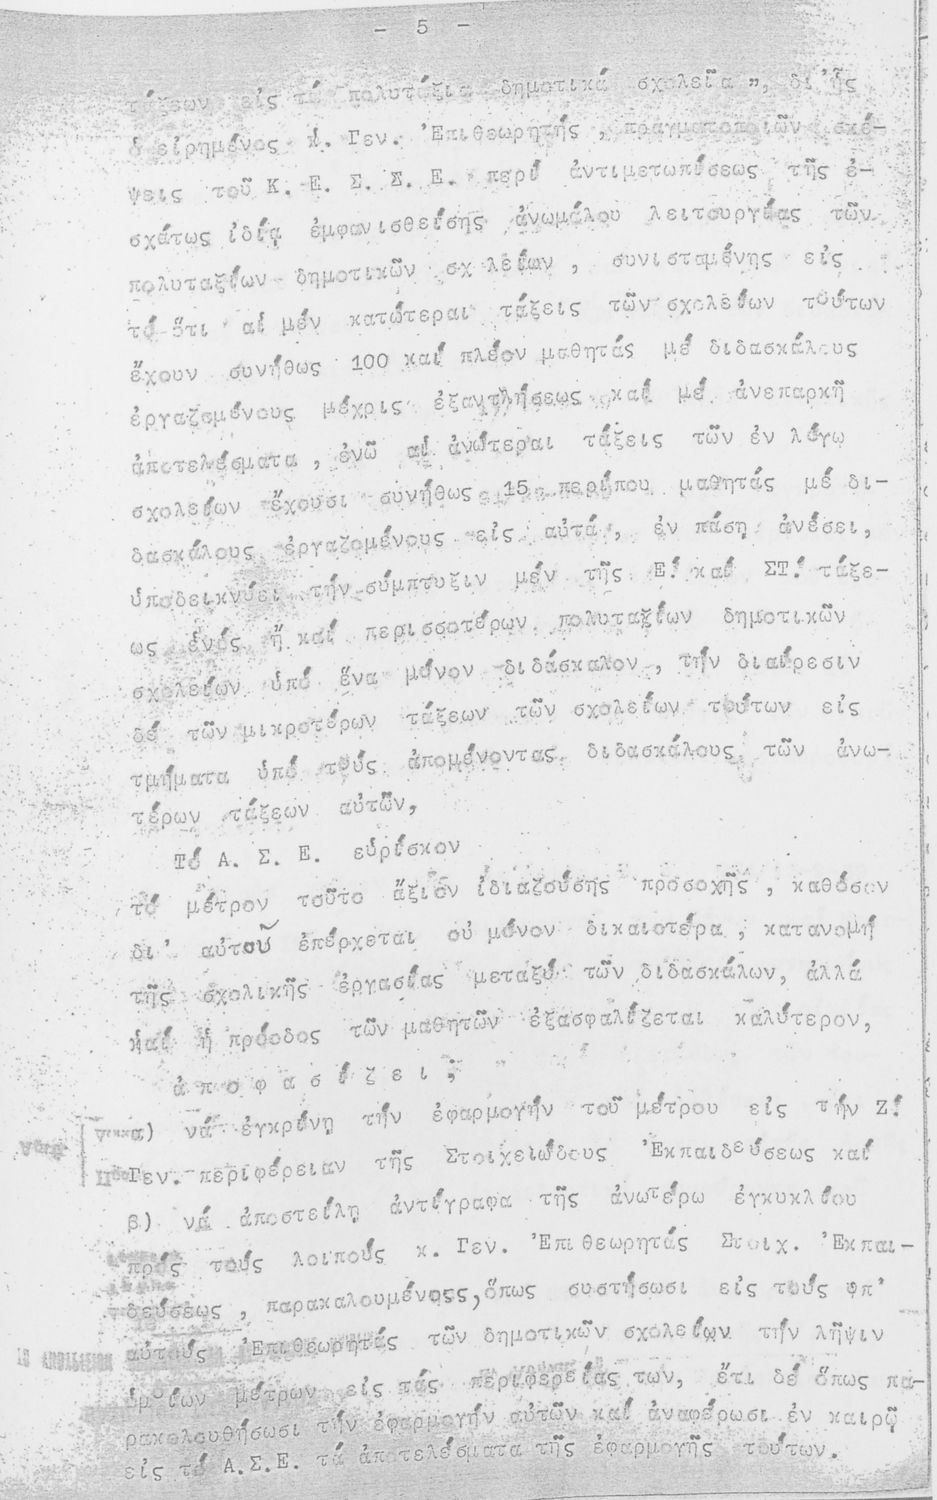 - 5 -
τάξεων εἰς τά πολυτάξια δημοτικά σχολεῖα", δι'ἧς
ὁ εἰρημένος κ. Γεν. Ἐπιθεωρητής, πραγματοποιῶν σκέ-
ψεις τοῦ Κ. Ε. Σ. Σ. Ε. περί ἀντιμετωπίσεως τῆς ἐ-
σχάτως ἰδίᾳ ἐμφανισθείσης ἀνωμάλου λειτουργίας τῶν
πολυταξίων δημοτικῶν σχολείων, συνισταμένης εἰς
τό ὅτι αἱ μέν κατώτεραι τάξεις τῶν σχολείων τούτων
ἔχουν συνήθως 100 καί πλέον μαθητάς μέ διδασκάλους
ἐργαζομένους μέχρις ἐξαντλήσεως καί μέ ἀνεπαρκῆ
ἀποτελέσματα, ἐνῶ αἱ ἀνώτεραι τάξεις τῶν ἐν λόγῳ
σχολείων ἔχουσι συνήθως 15 περίπου μαθητάς μέ δι-
δασκάλους ἐργαζομένους εἰς αὐτά, ἐν πάσῃ ἀνέσει,
ὑποδεικνύει τήν σύμπτυξιν μέν τῆς Ε! καί ΣΤ! τάξε-
ως ἑνός ἤ καί περισσοτέρων πολυταξίων δημοτικῶν
σχολείων ὑπό ἕνα μόνον διδάσκαλον, τήν διαίρεσιν
δέ τῶν μικροτέρων τάξεων τῶν σχολείων τούτων εἰς
τμήματα ὑπό τούς ἀπομένοντας διδασκάλους τῶν ἀνω-
τέρων τάξεων αὐτῶν,
Τό Α. Σ. Ε. εὑρίσκον
τό μέτρον τοῦτο ἄξιον ἰδιαζούσης προσοχῆς, καθόσον
δι' αὐτοῦ ἐπέρχεται οὐ μόνον δικαιοτέρα, κατανομή
τῆς σχολικῆς ἐργασίας μεταξύ τῶν διδασκάλων, ἀλλά
καί ἡ πρόοδος τῶν μαθητῶν ἐξασφαλίζεται καλύτερον,
ἀ π ο φ α σ ί ζ ε ι ;
α) νά ἐγκρίνῃ τήν ἐφαρμογήν τοῦ μέτρου εἰς τήν Ζ!
Γεν. περιφέρειαν τῆς Στοιχειώδους Ἐκπαιδεύσεως καί
β) νά ἀποστείλῃ ἀντίγραφα τῆς ἀνωτέρω ἐγκυκλίου
πρός τούς λοιπούς κ. Γεν. Ἐπιθεωρητάς Στοιχ. Ἐκπαι-
δεύσεως, παρακαλουμένοςς, ὅπως συστήσωσι εἰς τούς ὑπ'
αὐτούς Ἐπιθεωρητάς τῶν δημοτικῶν σχολείων τήν λῆψιν
ὁμοίων μέτρων εἰς τάς περιφερείας των, ἔτι δέ ὅπως πα-
ρακολουθήσωσι τήν ἐφαρμογήν αὐτῶν καί ἀναφέρωσι ἐν καιρῷ
εἰς τό Α.Σ.Ε. τά ἀποτελέσματα τῆς ἐφαρμογῆς τούτων.